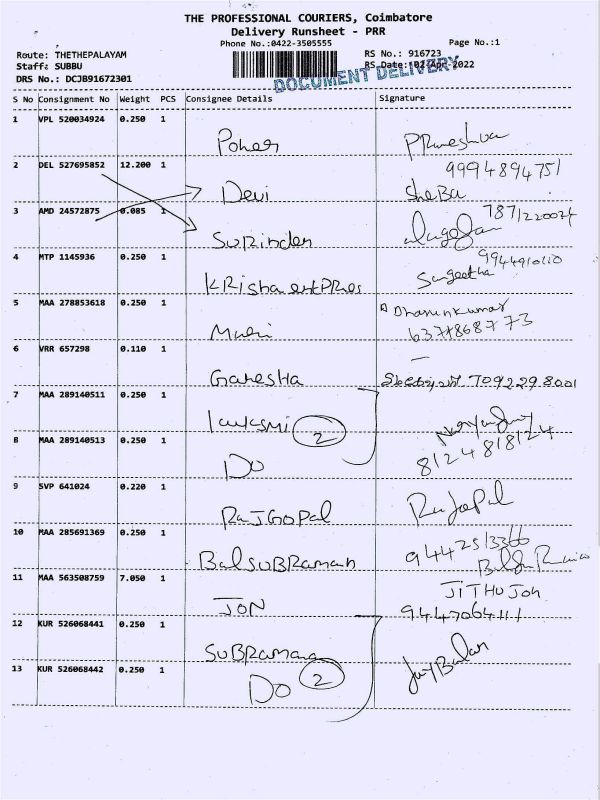 THE PROFESSIONAL COURIERS, Coimbatore
Delivery Runsheet - PRR
Phone No.:0422-3505555
Page No.:1
Route: THETHEPALAYAM
RS No.: 916723
Staff: SUBBU
RS Date: 02-Apr-2022
DRS No.: DCJB91672301
DOCUMENT DELIVERY
S No Consignment No Weight PCS Consignee Details Signature
1 VPL 520034924 0.250 1
2 DEL 527695852 12.200 1 9994894751
Devi SheBa
3 AMD 24572875 0.085 1
Surinder
4 MTP 1145936 0.250 1 9944910110
Sangeetha
5 MAA 278853618 0.250 1 Dharunkumar
6 VRR 657298 0.110 1 —
Ganesha 7092298001
7 MAA 289140511 0.250 1
2
8 MAA 289140513 0.250 1
DO 8124818124
9 SVP 641024 0.220 1
RAJGOPAL
10 MAA 285691369 0.250 1
BalSUBRaman
11 MAA 563508759 7.050 1 JITHU Jon
JON 9447064111
12 KUR 526068441 0.250 1
SUBRamana
13 KUR 526068442 0.250 1
DO 2